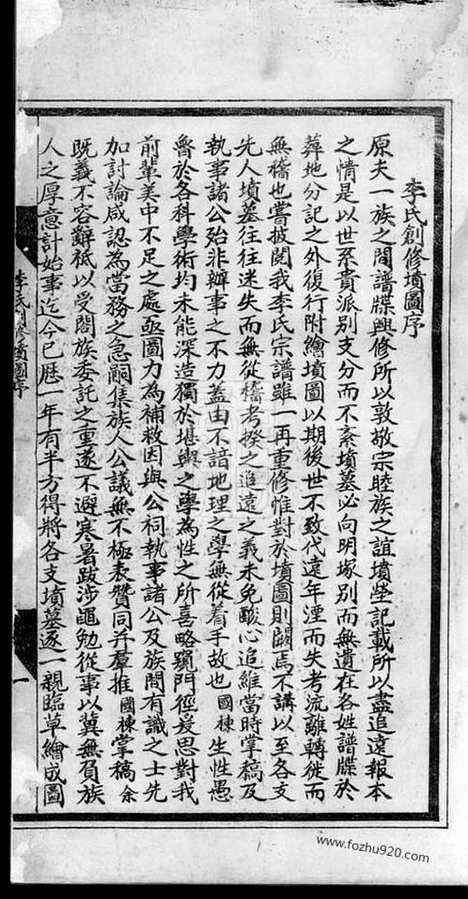 李氏創修墳圖序
原夫一族之間譜牒興修所以敦敬宗睦族之誼墳塋記載所以盡追遠報本
之情是以世系貴派別支分而不紊墳墓必向明塚別而無遺在各姓譜牒於
葬地分記之外復行附繪墳圖以期後世不致代遠年湮而失考流離轉徙而
無稽也嘗披閱我李氏宗譜雖一再重修惟對於墳圖則闕焉不講以至各支
先人墳墓往往迷失而無從稽考揆之追遠之義未免酸心追維當時掌稿及
執事諸公殆非辦事之不力蓋由不諳地理之學無從着手故也國棟生性愚
魯於各科學術均未能深造獨於堪輿之學為性之所喜略窺門徑爰思對我
前輩美中不足之處亟圖力為補救因與公祠執事諸公及族間有識之士先
加討論咸認為當務之急嗣集族人公議無不極表贊同并羣推國棟掌稿余
既義不容辭祗以受闔族委託之重遂不避寒暑跋涉黽勉從事以冀無負族
人之厚意計始事迄今已歷一年有半方得將各支墳墓逐一親臨草繪成圖
李氏創修墳圖序
一
www.fozhu920.com